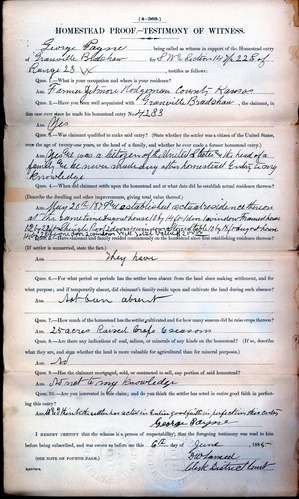 [4-369.]
HOMESTEAD PROOF—TESTIMONY OF WITNESS.
George Payne being called as witness in support of the Homestead entry
of Granville Bradshaw for S.W. ¼ Section 14 T 22 S of
Range 23 testifies as follows:
Ques. 1.—What is your occupation and where is your residence?
Ans. Farmer Hodgeman County Kansas
Ques. 2.—Have you been well acquainted with Granville Bradshaw, the claimant, in
this case ever since he made his homestead entry No. 4283
Ans. Yes
Ques. 3.—Was claimant qualified to make said entry? (State whether the settler was a citizen of the United States,
over the age of twenty-one years, or the head of a family, and whether he ever made a former homestead entry.)
Ans. Yes. He was a citizen of the United States & the head of a
family & he never made any other homestead Entry to my
Knowledge
Ques. 4.—When did claimant settle upon the homestead and at what date did he establish actual residence thereon?
(Describe the dwelling and other improvements, giving total value thereof.)
Ans. May 20th established actual residence thereon
at the same time
Ques. 5.—Have claimant and family resided continuously on the homestead since first establishing residence thereon?
(If settler is unmarried, state the fact.)
Ans. They have
Ques. 6.—For what period or periods has the settler been absent from the land since making settlement, and for
what purpose; and if temporarily absent, did claimant's family reside upon and cultivate the land during such absence?
Ans. Not been absent
Ques. 7.—How much of the homestead has the settler cultivated and for how many seasons did he raise crops thereon?
Ans. 25 acres Raised Crops 6 seasons
Ques. 8.—Are there any indications of coal, salines, or minerals of any kinds on the homestead? (If so, describe
what they are, and state whether the land is more valuable for agricultural than for mineral purposes.)
Ans. No
Ques. 9.—Has the claimant mortgaged, sold, or contracted to sell, any portion of said homestead?
Ans. No not to my knowledge
Ques. 10.—Are you interested in this claim; and do you think the settler has acted in entire good faith in perfect-
ing this entry?
Ans. the settler has acted in Entire good faith in perfecting this entry
George Payne
I HEREBY CERTIFY that the witness is a person of respectability; that the foregoing testimony was read to him
before being subscribed, and was sworn to before me this 6th day of June, 1885
(SEE NOTE ON FOURTH PAGE.)
Clerk District Court